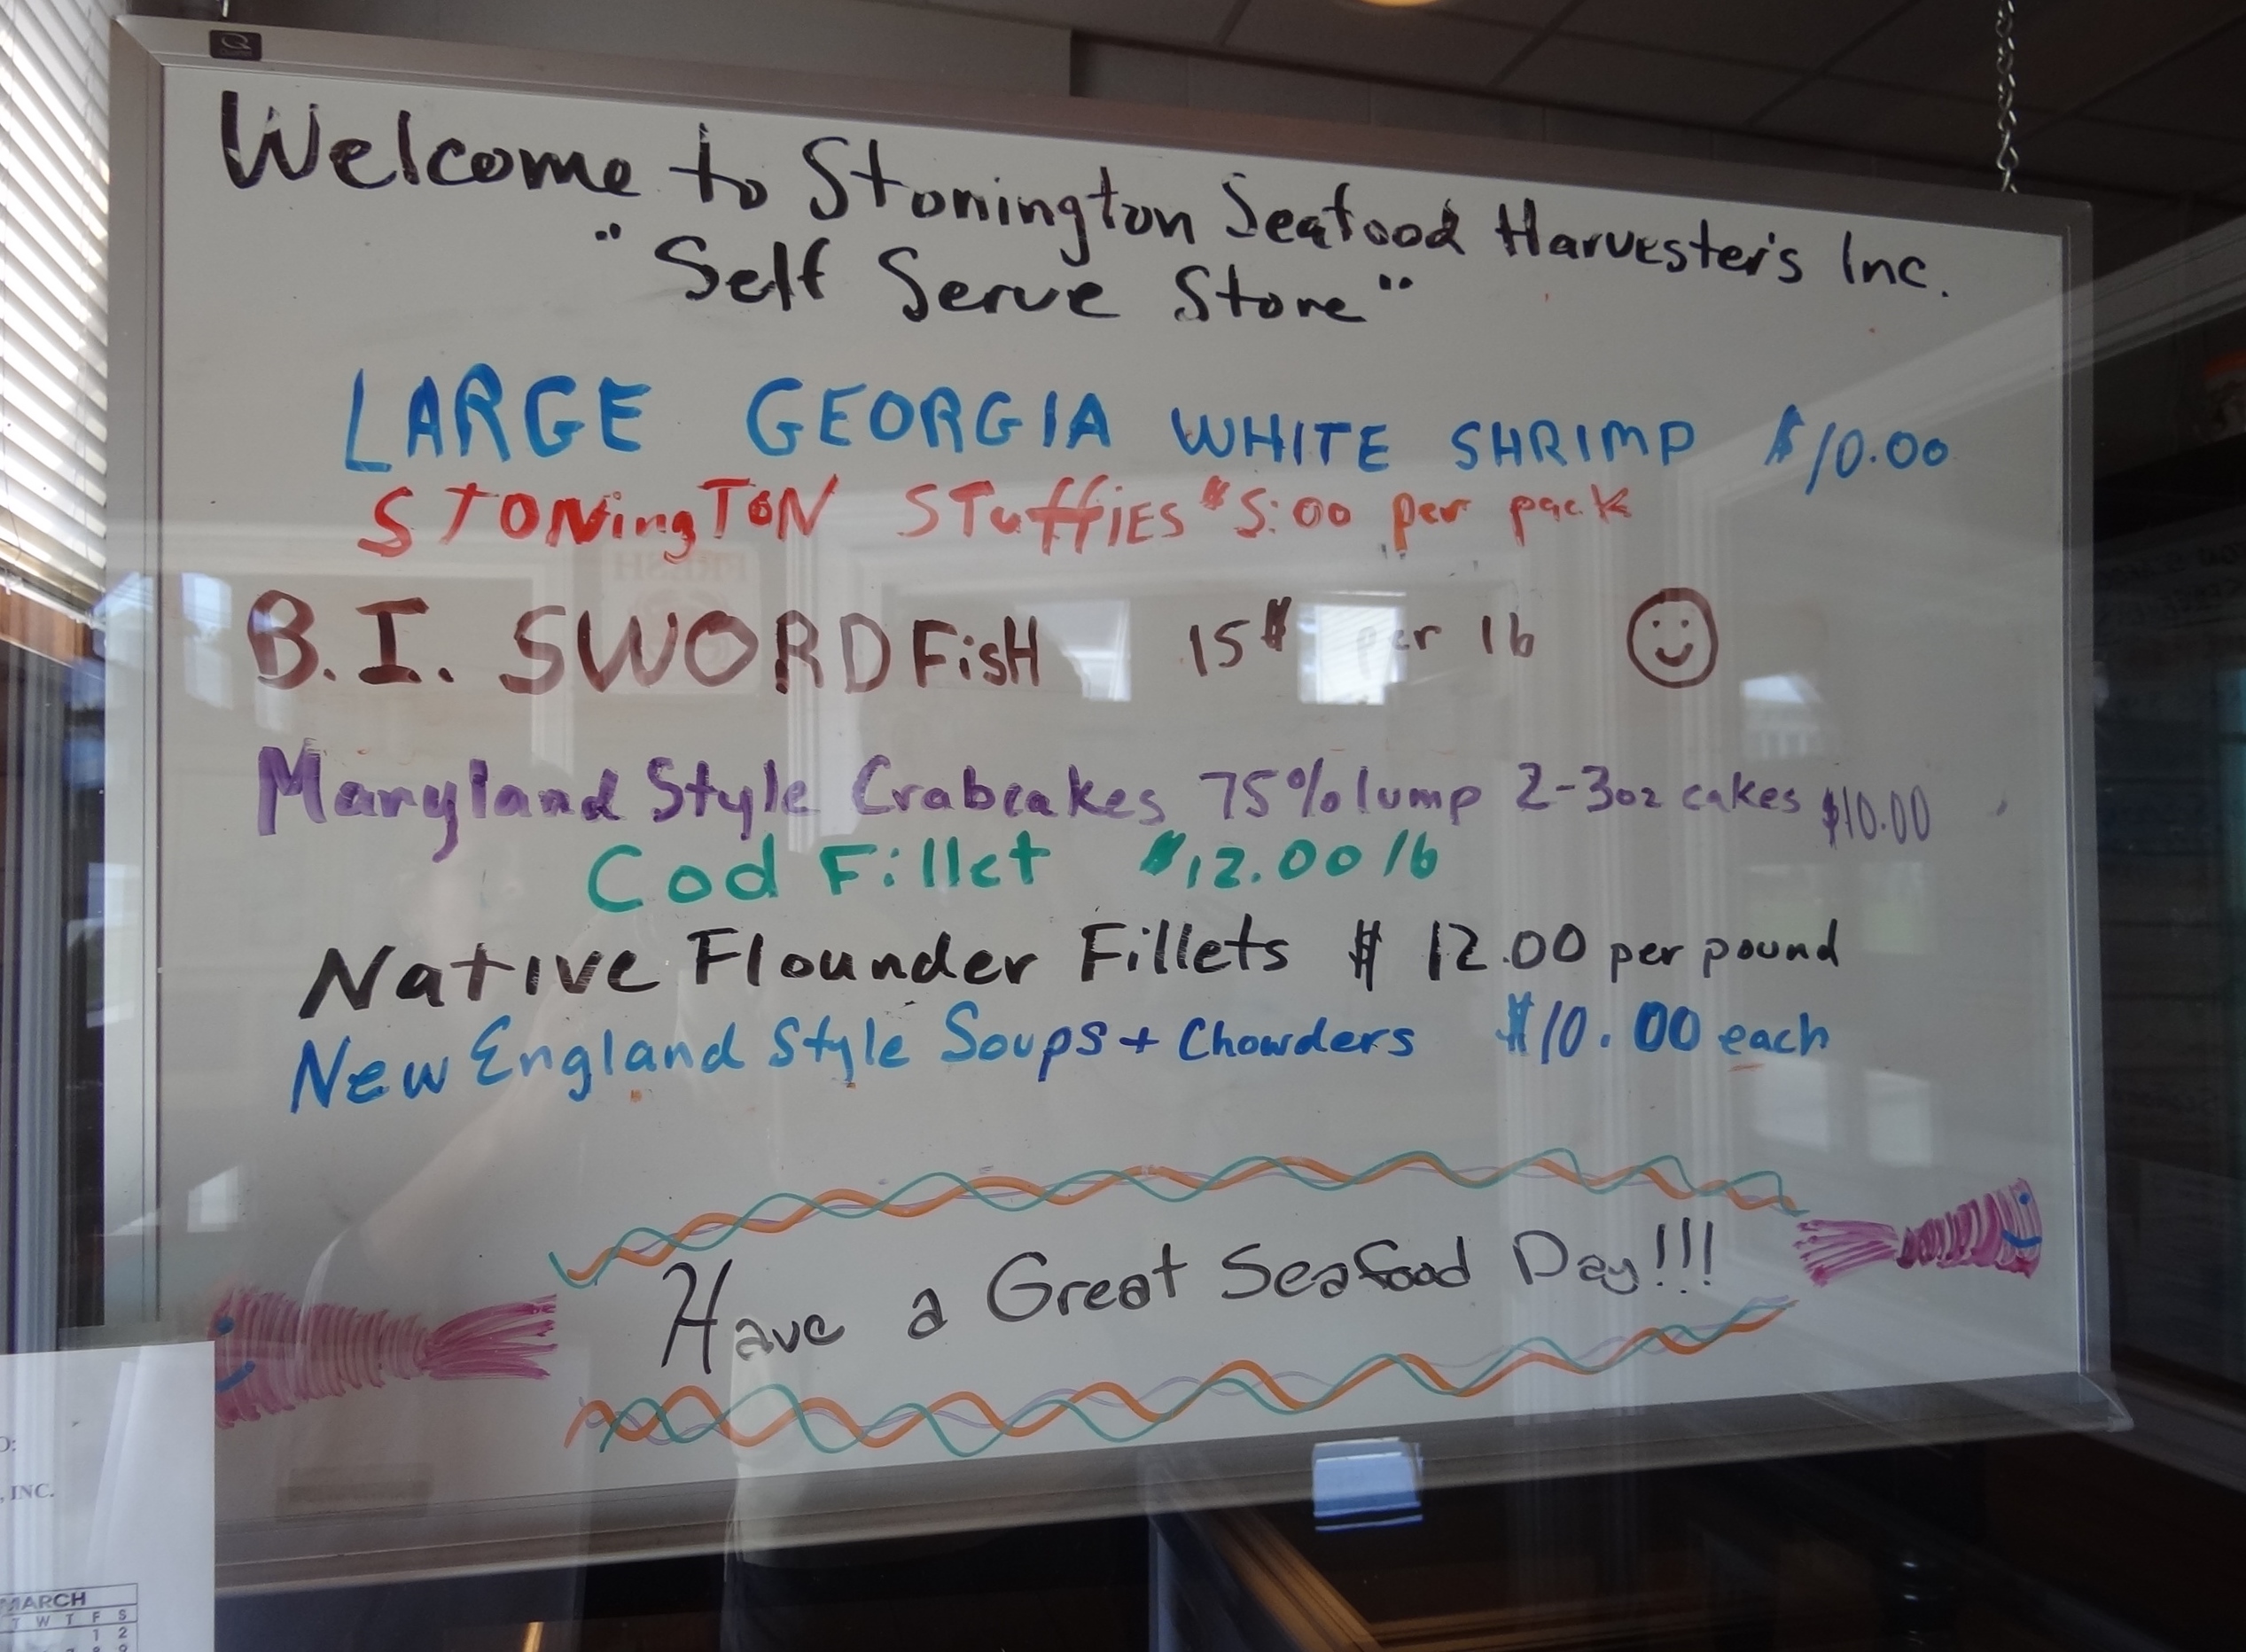 Welcome to Stonington Seafood Harvester's Inc.
"Self Serve Store"
LARGE GEORGIA WHITE SHRIMP $10.00
STONingTON STuffiES $5:00 per pack
B.I. SWORDFisH 15$ per lb
Maryland Style Crabcakes 75% lump 2-3oz cakes $10.00
Cod Fillet $12.00 lb
Native Flounder Fillets $12.00 per pound
New England Style Soups + Chowders $10.00 each
Have a Great Seafood Day!!!
, INC.
MARCH
T W T F S
1 2